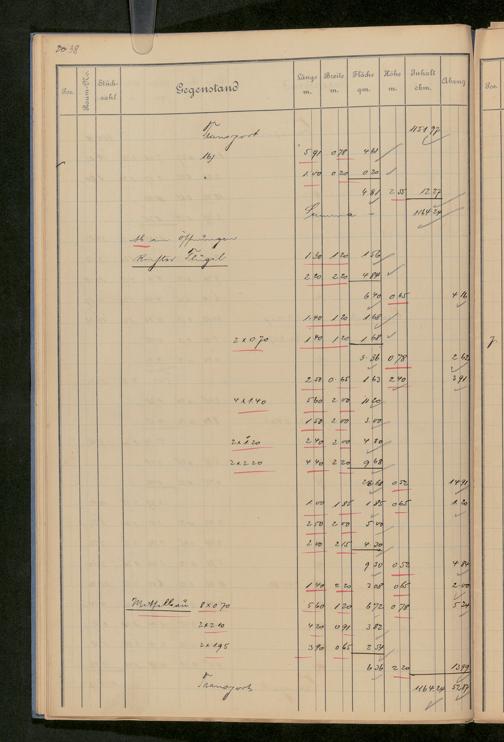 38
Pos. Raum-No. Stück-zahl Gegenstand Länge m. Breite m. Fläche qm. Höhe m. Inhalt cbm. Abzug
Transport 1151 97
5 91 0 78 4 61
1 00 0 20 0 20
4 81 2 55 12 27
Summa - 1164 24
Ab an Öffnungen
Flügel 1 30 1 20 1 56
2 20 2 20 4 84
6 40 0 65 4 16
1 40 1 20 1 68
2 x 0,70 1 40 1 20 1 68
3 36 0 78 2 62
2 50 0 65 1 63 2 40 3 91
4 x 1.40 5 60 2 00 11 20
1 50 2 00 3 00
2 x 1.20 2 40 2 00 4 80
2 x 2.20 4 40 2 20 9 68
28 68 0 52 14 91
1 00 1 85 1 85 0 65 1 20
2 50 2 00 5 00
2 00 2 15 4 30
9 30 0 52 4 84
1 40 2 20 3 08 0 65 2 00
Mittelbau 8 x 0.70 5 60 1 20 6 72 0 78 5 24
2 x 2.10 4 20 0 91 3 82
2 x 1.95 3 90 0 65 2 54
6 36 2 20 13 99
Transport 1164 24 52 87